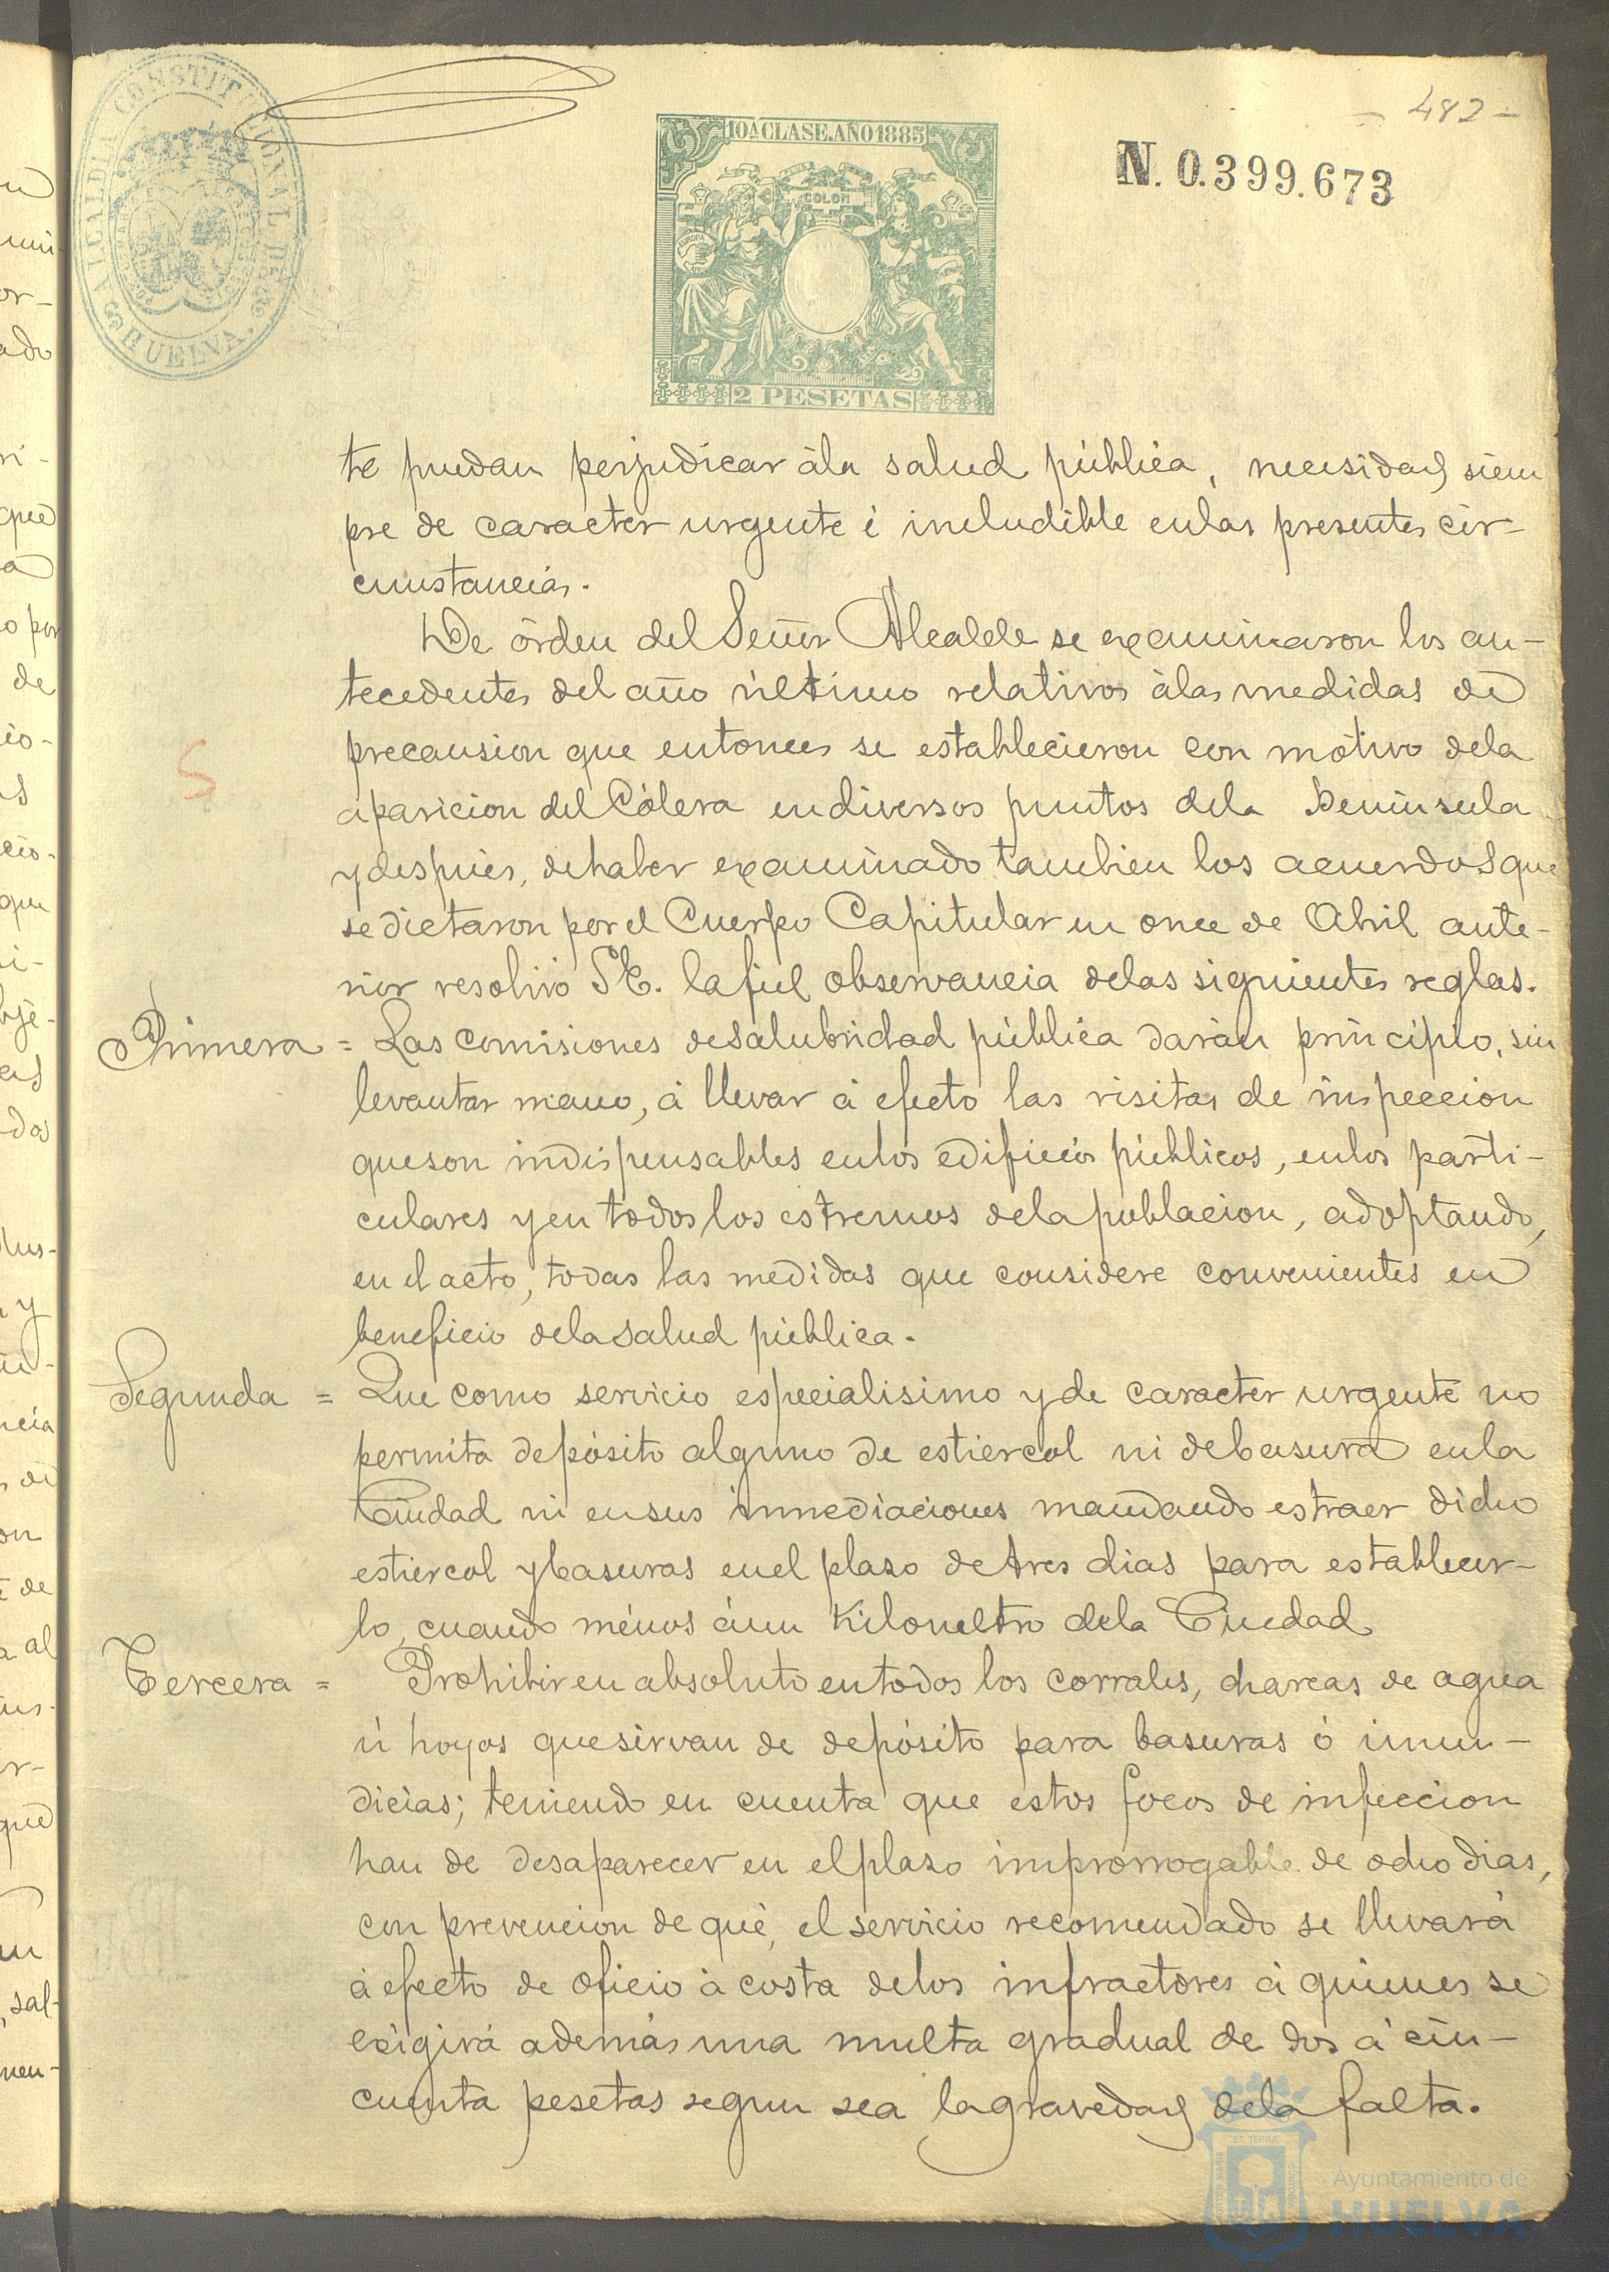 - 482 -
ALCALDIA CONSTITUCIONAL DE HUELVA.
10A CLASE.AÑO1885
COLON
EUROPA
2 PESETAS
N. 0.399.673
te puedan perjudicar àla salud pública, necesidad siem
pre de caracter urgente é ineludible enlas presentes cir-
cunstancias.
De órden del Señor Alcalde se examinaron los an-
tecedentes del año último relativos àlas medidas de
precausion que entonces se establecieron con motivo dela
aparicion del Cólera endiversos puntos dela Peninsula
y despues, dehaber examinado tambien los acuerdos que
se dictaron por el Cuerpo Capitular en once de Abril ante-
rior resolvió S.E. la fiel observancia delas siguientes reglas.
Primera = Las comisiones desalubridad pública darán principio, sin
levantar mano, á llevar á efecto las visitas de inspeccion
queson indispensables enlos edificios públicos, enlos parti-
culares y en todos los estremos dela poblacion, adoptando,
en el acto, todas las medidas que considere convenientes en
beneficio dela salud pública.
Segunda = Que como servicio especialisimo y de caracter urgente no
permita depósito alguno de estiercol ni debasura enla
Ciudad ni ensus inmediaciones mandando estraer dicho
estiercol y basuras enel plazo detres dias para establecer-
lo, cuando ménos áun Kilometro dela Ciudad
Tercera = Prohibir en absoluto entodos los corrales, charcas de agua
ú hoyos quesirvan de depósito para basuras ó inmun-
dicias; teniendo en cuenta que estos focos de infeccion
han de desaparecer en el plazo improrrogable de ocho dias,
con prevencion de qué, el servicio recomendado se llevará
á efecto de oficio á costa delos infractores á quienes se
exigirá además una multa gradual de dos á cin-
cuenta pesetas segun sea la gravedad dela falta.
5
Ayuntamiento de
HUELVA